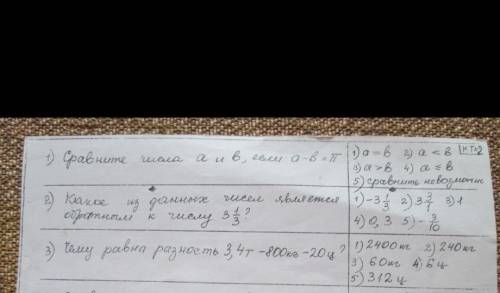 1) Сравните числа a и b, если a-b=π
1) a=b 2) a<b
3) a>b 4) a≤b
5) сравнить невозможн
2) Какое из данных чисел является
обратным к числу 3 1/3?
1) -3 1/3 2) 3 3/1 3) 1
4) 0,3 5) -3/10
3) Чему равна разность 3,4т -800кг -20ц?
1) 2400кг 2) 240кг
3) 60кг 4) 6ц
5) 312ц